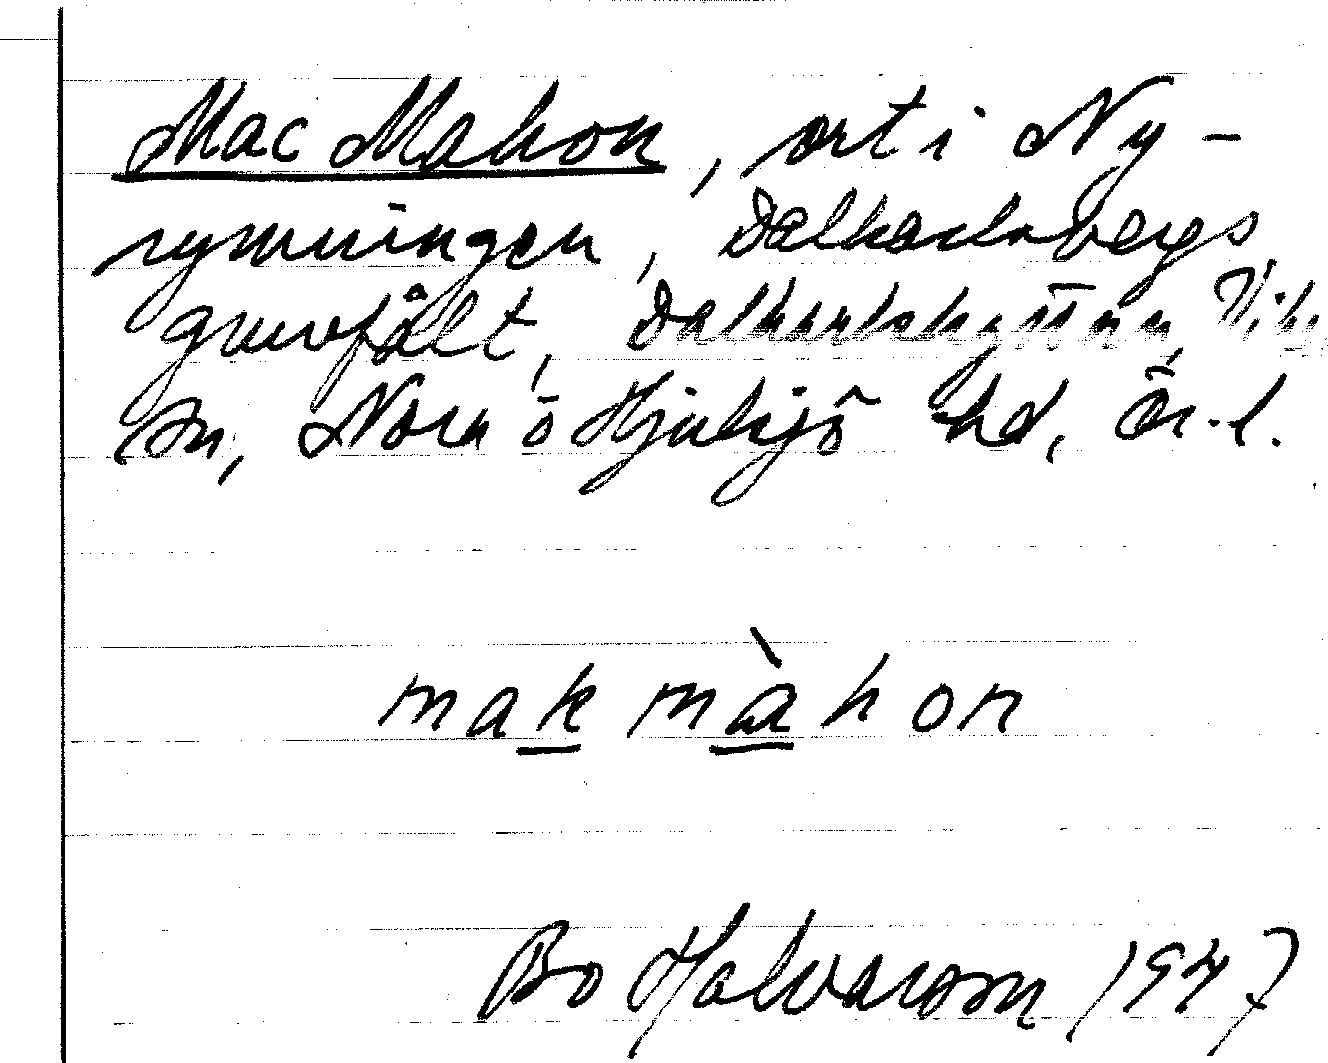 Mac Mahon, ort i Ny-
rymningen, Dalkarlsbergs
gruvfält, Dalkarlshyttan, Vik
sn, Nora o Hjulsjö hd, Ör. l.
mak màhon
Bo Halvarson 1947